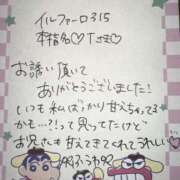 イルファーロ315
本指名♡Tさま♡
お誘い頂いて
ありがとうございました!
いつも私ばっかり甘えちゃってる
かも…?!って思ってたけど
お兄さんも甘えてきてくれてうれしい♡